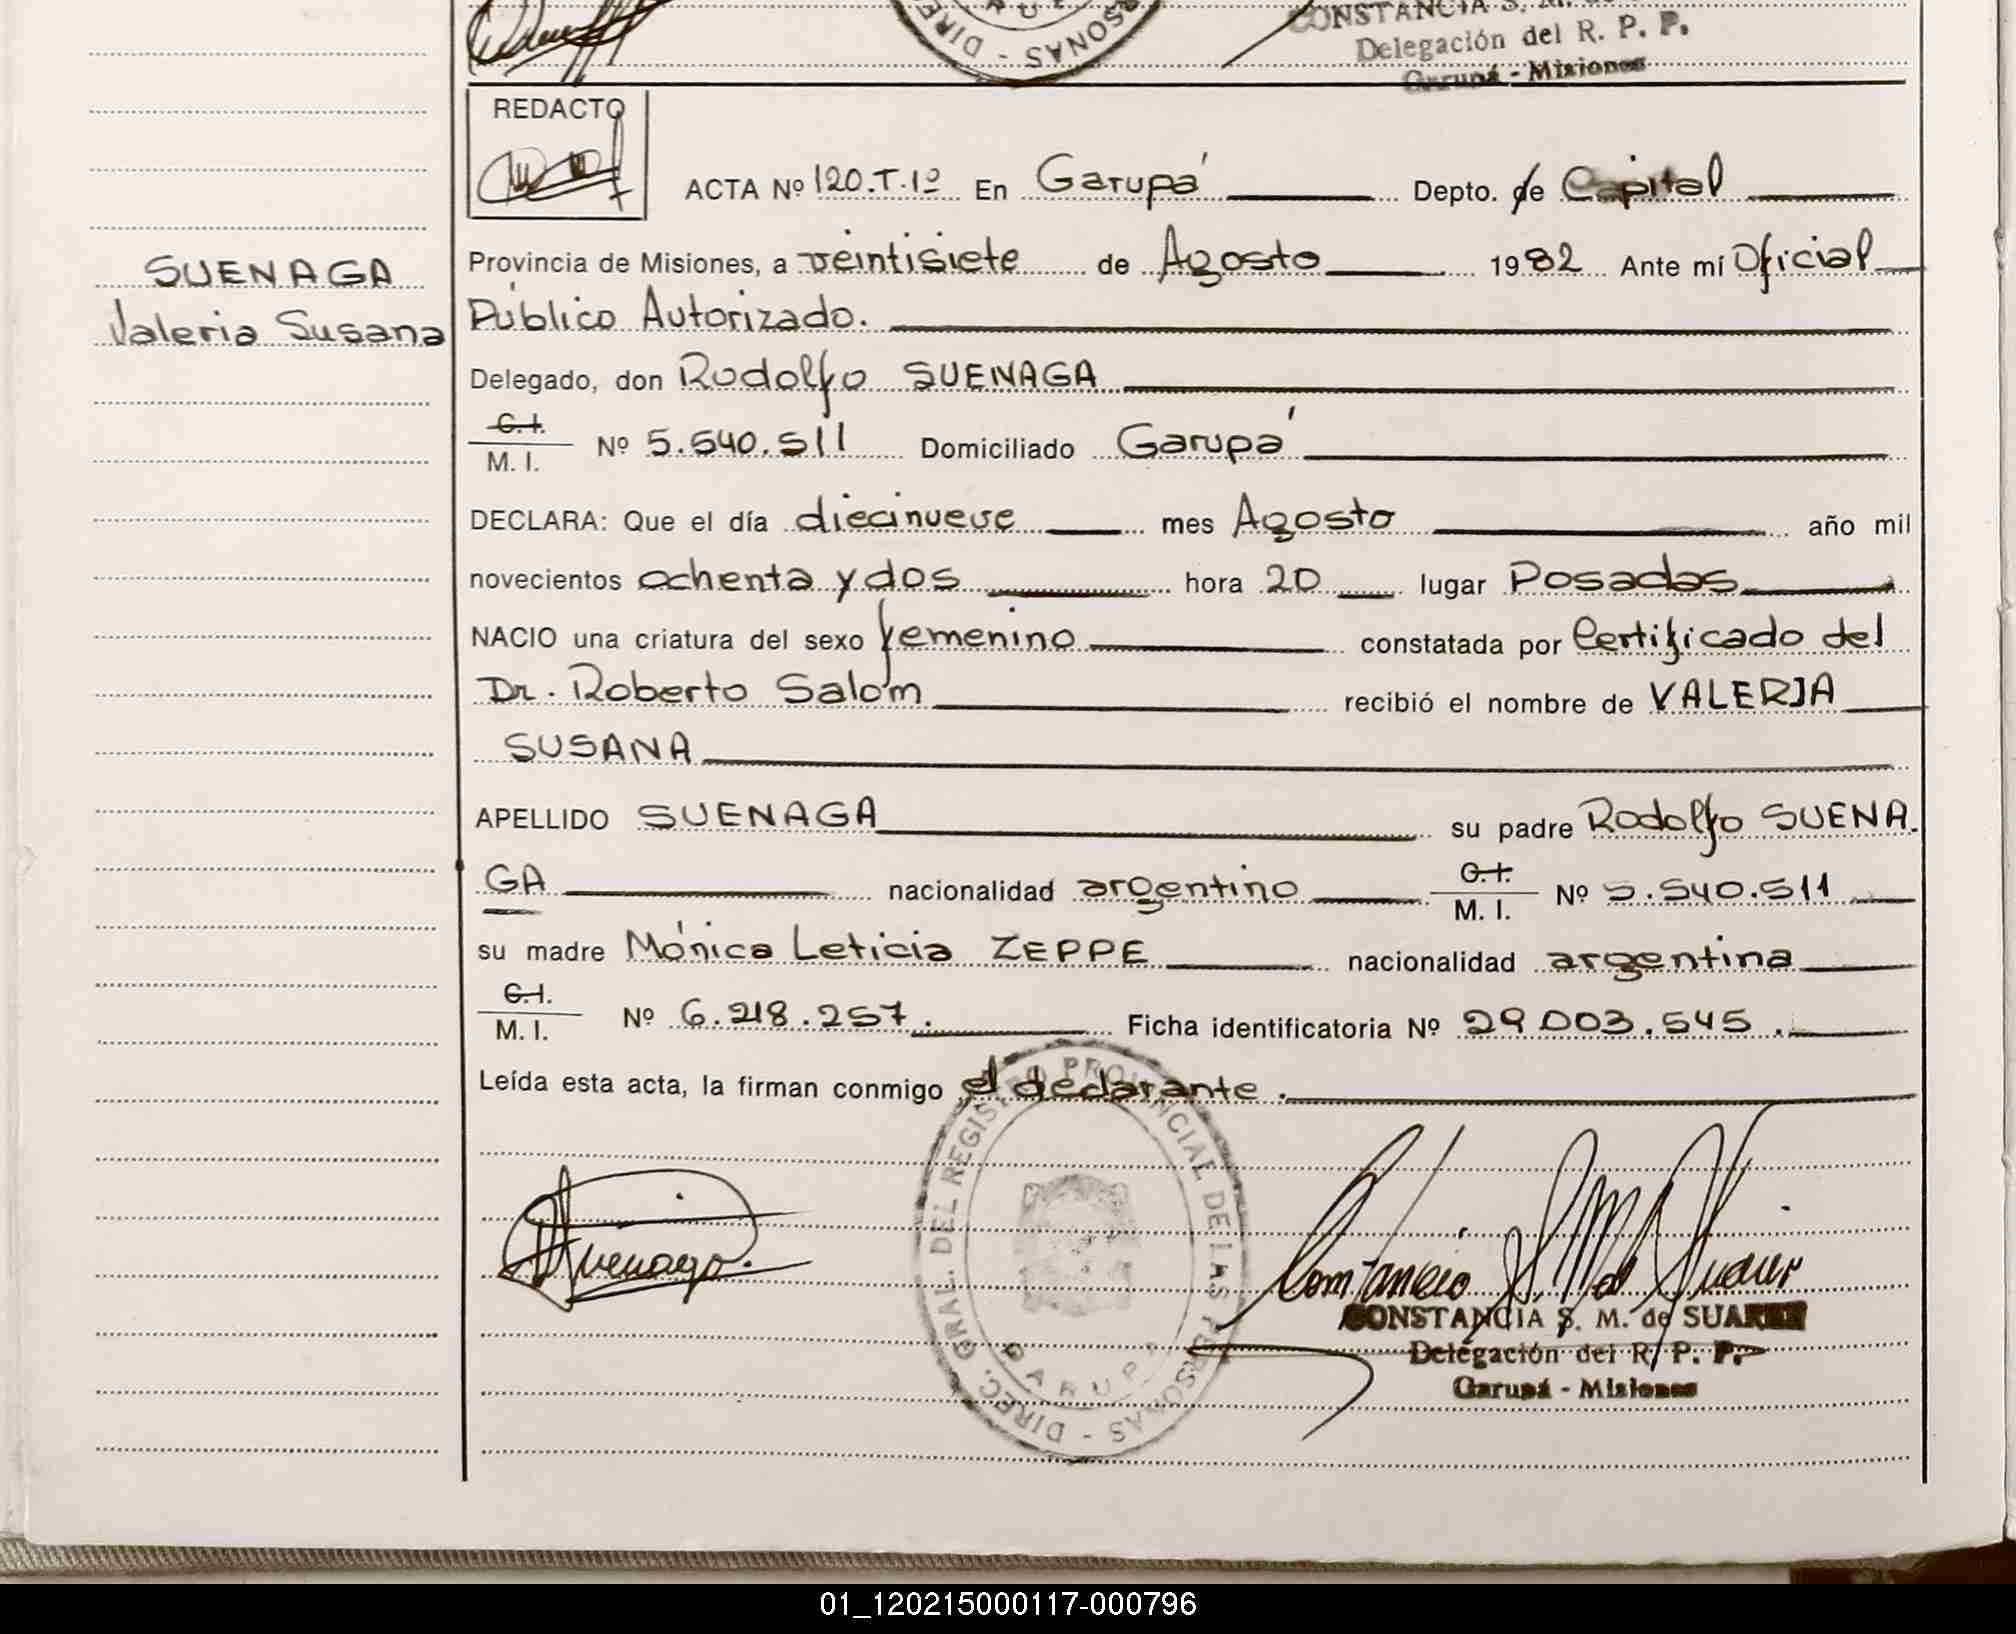 CONSTANCIA S. M. de
Delegación del R. P. P.
Garupá - Misiones
REDACTO
ACTA Nº 120.T.1º En Garupá Depto. de Capital
SUENAGA
Valeria Susana
Provincia de Misiones, a veintisiete de Agosto 1982 Ante mí Oficial
Público Autorizado.
Delegado, don Rodolfo SUENAGA
C.I.
M. I. Nº 5.540.511 Domiciliado Garupá
DECLARA: Que el día diecinueve mes Agosto año mil
novecientos ochenta y dos hora 20 lugar Posadas
NACIO una criatura del sexo femenino constatada por Certificado del
Dr. Roberto Salom recibió el nombre de VALERIA
SUSANA
APELLIDO SUENAGA su padre Rodolfo SUENA-
GA nacionalidad argentino C.I. M. I. Nº 5.540.511
su madre Mónica Leticia ZEPPE nacionalidad argentina
C.I.
M. I. Nº 6.218.257. Ficha identificatoria Nº 29.003.545.
Leída esta acta, la firman conmigo el declarante.
DIREC. GRAL. DEL REGISTRO PROVINCIAL DE LAS PERSONAS -
GARUPÁ
Suenaga
Constancia S. M. de Suarez
CONSTANCIA S. M. de SUAREZ
Delegación del R. P. P.
Garupá - Misiones
01_120215000117-000796